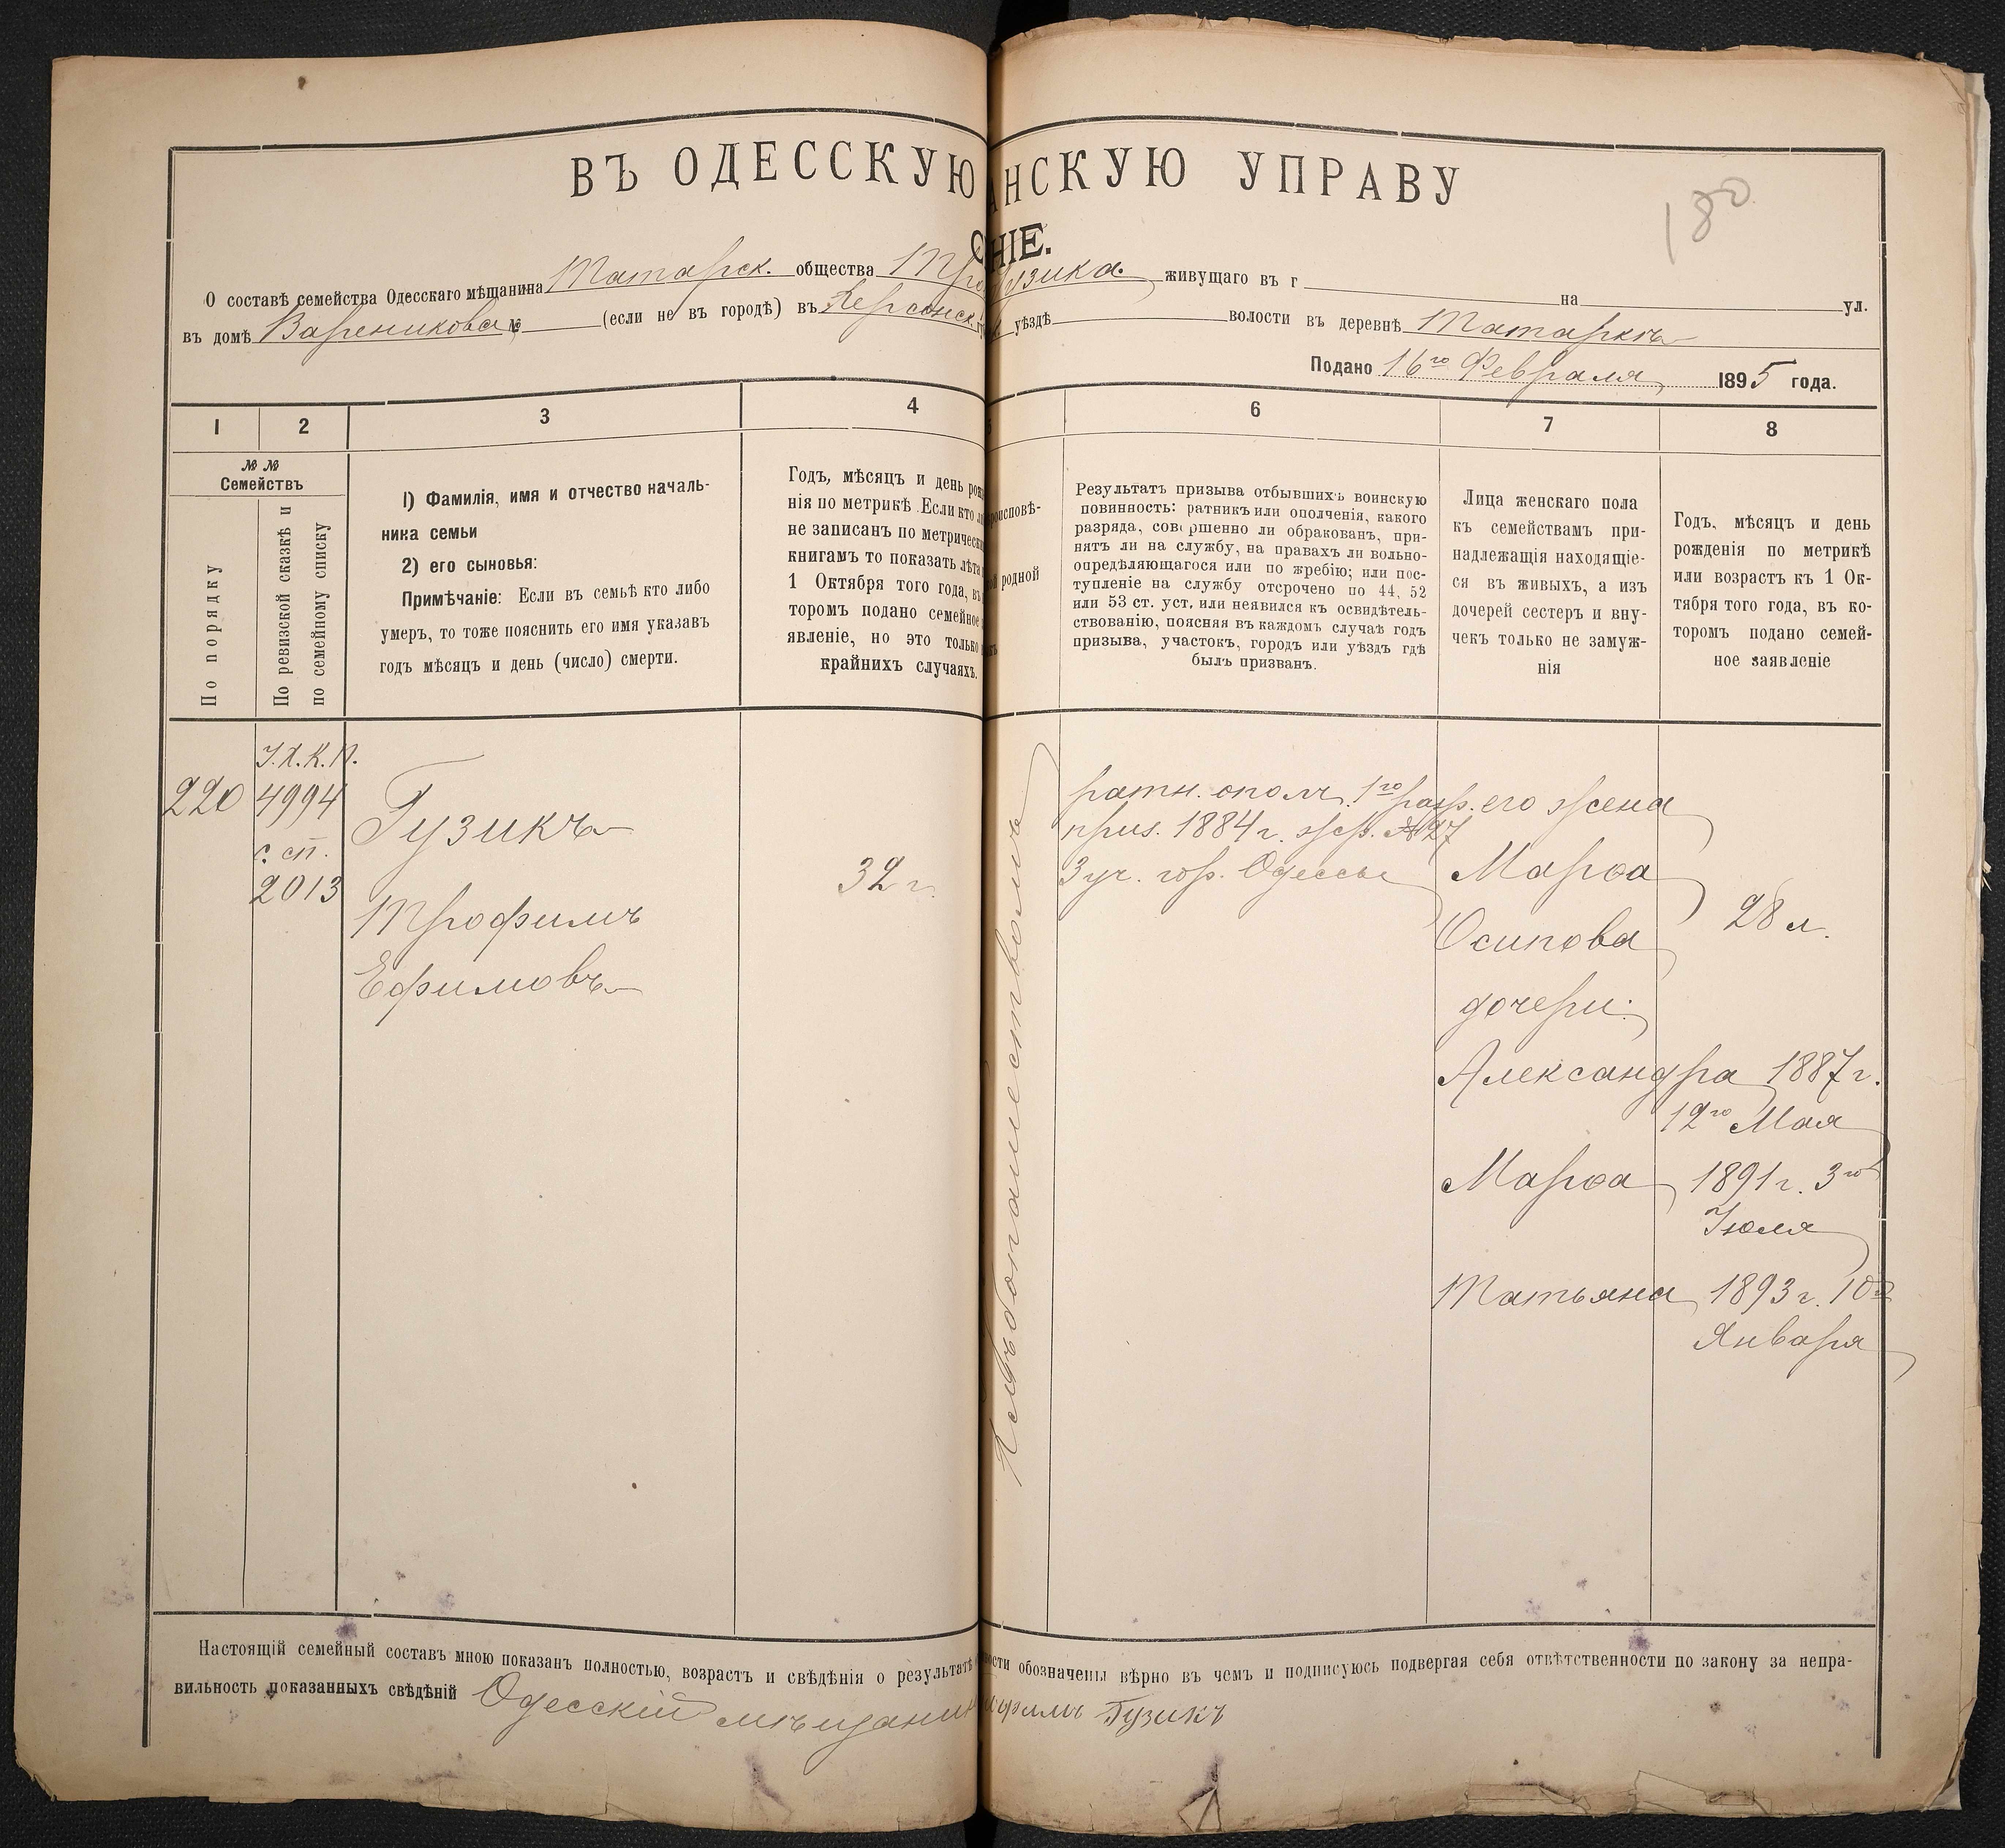 ВЪ ОДЕССКУЮ АНСКУЮ УПРАВУ
НІЕ.
180
О составѣ семейства Одесскаго мѣщанина Татарск. общества Тро узика живущаго въ г на ул.
въ домѣ Вареникова № (если не въ городѣ) въ Херсонск. уѣздѣ волости въ деревнѣ Татаркѣ
Подано 16го Февраля 1895 года.
1 2 3 4 6 7 8
№ № Семействъ
По порядку
По ревизской сказкѣ и
по семейному списку
1) Фамилія, имя и отчество началь-
ника семьи
2) его сыновья:
Примѣчаніе: Если въ семьѣ кто либо
умеръ, то тоже пояснить его имя указавъ
годъ мѣсяцъ и день (число) смерти.
Годъ, мѣсяцъ и день рож
нія по метрикѣ. Если кто
не записанъ по метрическ
книгамъ то показать лѣта
1 Октября того года, въ
торомъ подано семейное
явленіе, но это только
крайнихъ случаяхъ.
роисповѣ-
родной
Результатъ призыва отбывшихъ воинскую
повинность: ратникъ или ополченія, какого
разряда, совершенно ли обракованъ, при-
нятъ ли на службу, на правахъ ли вольно-
опредѣляющагося или по жребію; или пос-
тупленіе на службу отсрочено по 44, 52
или 53 ст. уст. или неявился къ освидѣтель-
ствованію, поясняя въ каждомъ случаѣ годъ
призыва, участокъ, городъ или уѣздъ гдѣ
былъ призванъ.
Лица женскаго пола
къ семействамъ при-
надлежащія находящіе-
ся въ живыхъ, а изъ
дочерей сестеръ и вну-
чекъ только не замуж-
нія
Годъ, мѣсяцъ и день
рожденія по метрикѣ
или возрастъ къ 1 Ок-
тября того года, въ ко-
торомъ подано семей-
ное заявленіе
220
4994
с. сп.
2013
Гузикъ
Трофимъ
Ефимовъ
32 г.
ратн. ополч. 1го разр.
приз. 1884 г. жр. № 27
3 уч. гор. Одессы
его жена
Марѳа
Осипова
28 л.
дочери:
Александра 1887 г.
12го Мая
Марѳа 1891 г. 3го
Іюля
Татьяна 1893 г. 10го
Января
Настоящій семейный составъ мною показанъ полностью, возрастъ и свѣдѣнія о результатѣ ности обозначены вѣрно въ чемъ и подписуюсь подвергая себя отвѣтственности по закону за непра-
вильность показанныхъ свѣдѣній Одесскій мѣщанин офимъ Гузикъ